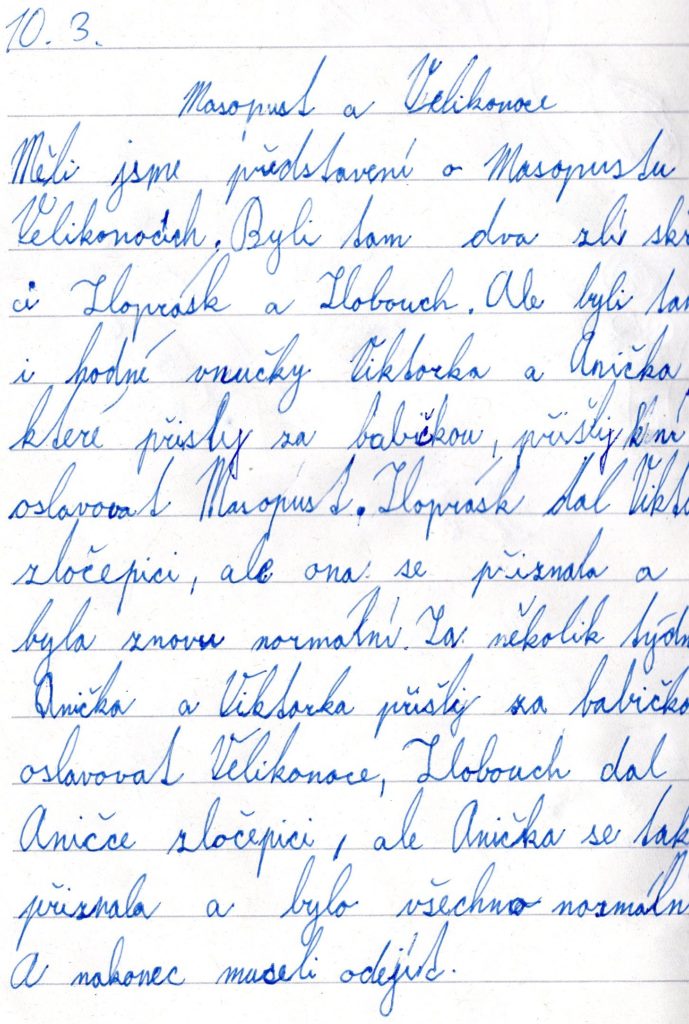 10. 3.
Masopust a Velikonoce
Měli jsme představení o Masopustu
Velikonocích. Byli tam dva zlí skř
ci Zloprásk a Zlobouch. Ale byli ta
i hodné vnučky Viktorka a Anička
které přisly za babičkou, přišly k ní
oslavovat Masopust. Zloprásk dal Vikto
zločepici, ale ona se přiznala a
byla znovu normální. Za několik týdn
Anička a Viktorka přišly za babičko
oslavovat Velikonoce, Zlobouch dal
Aničce zločepici, ale Anička se tak
přiznala a bylo všechno normáln
A nakonec museli odejít.